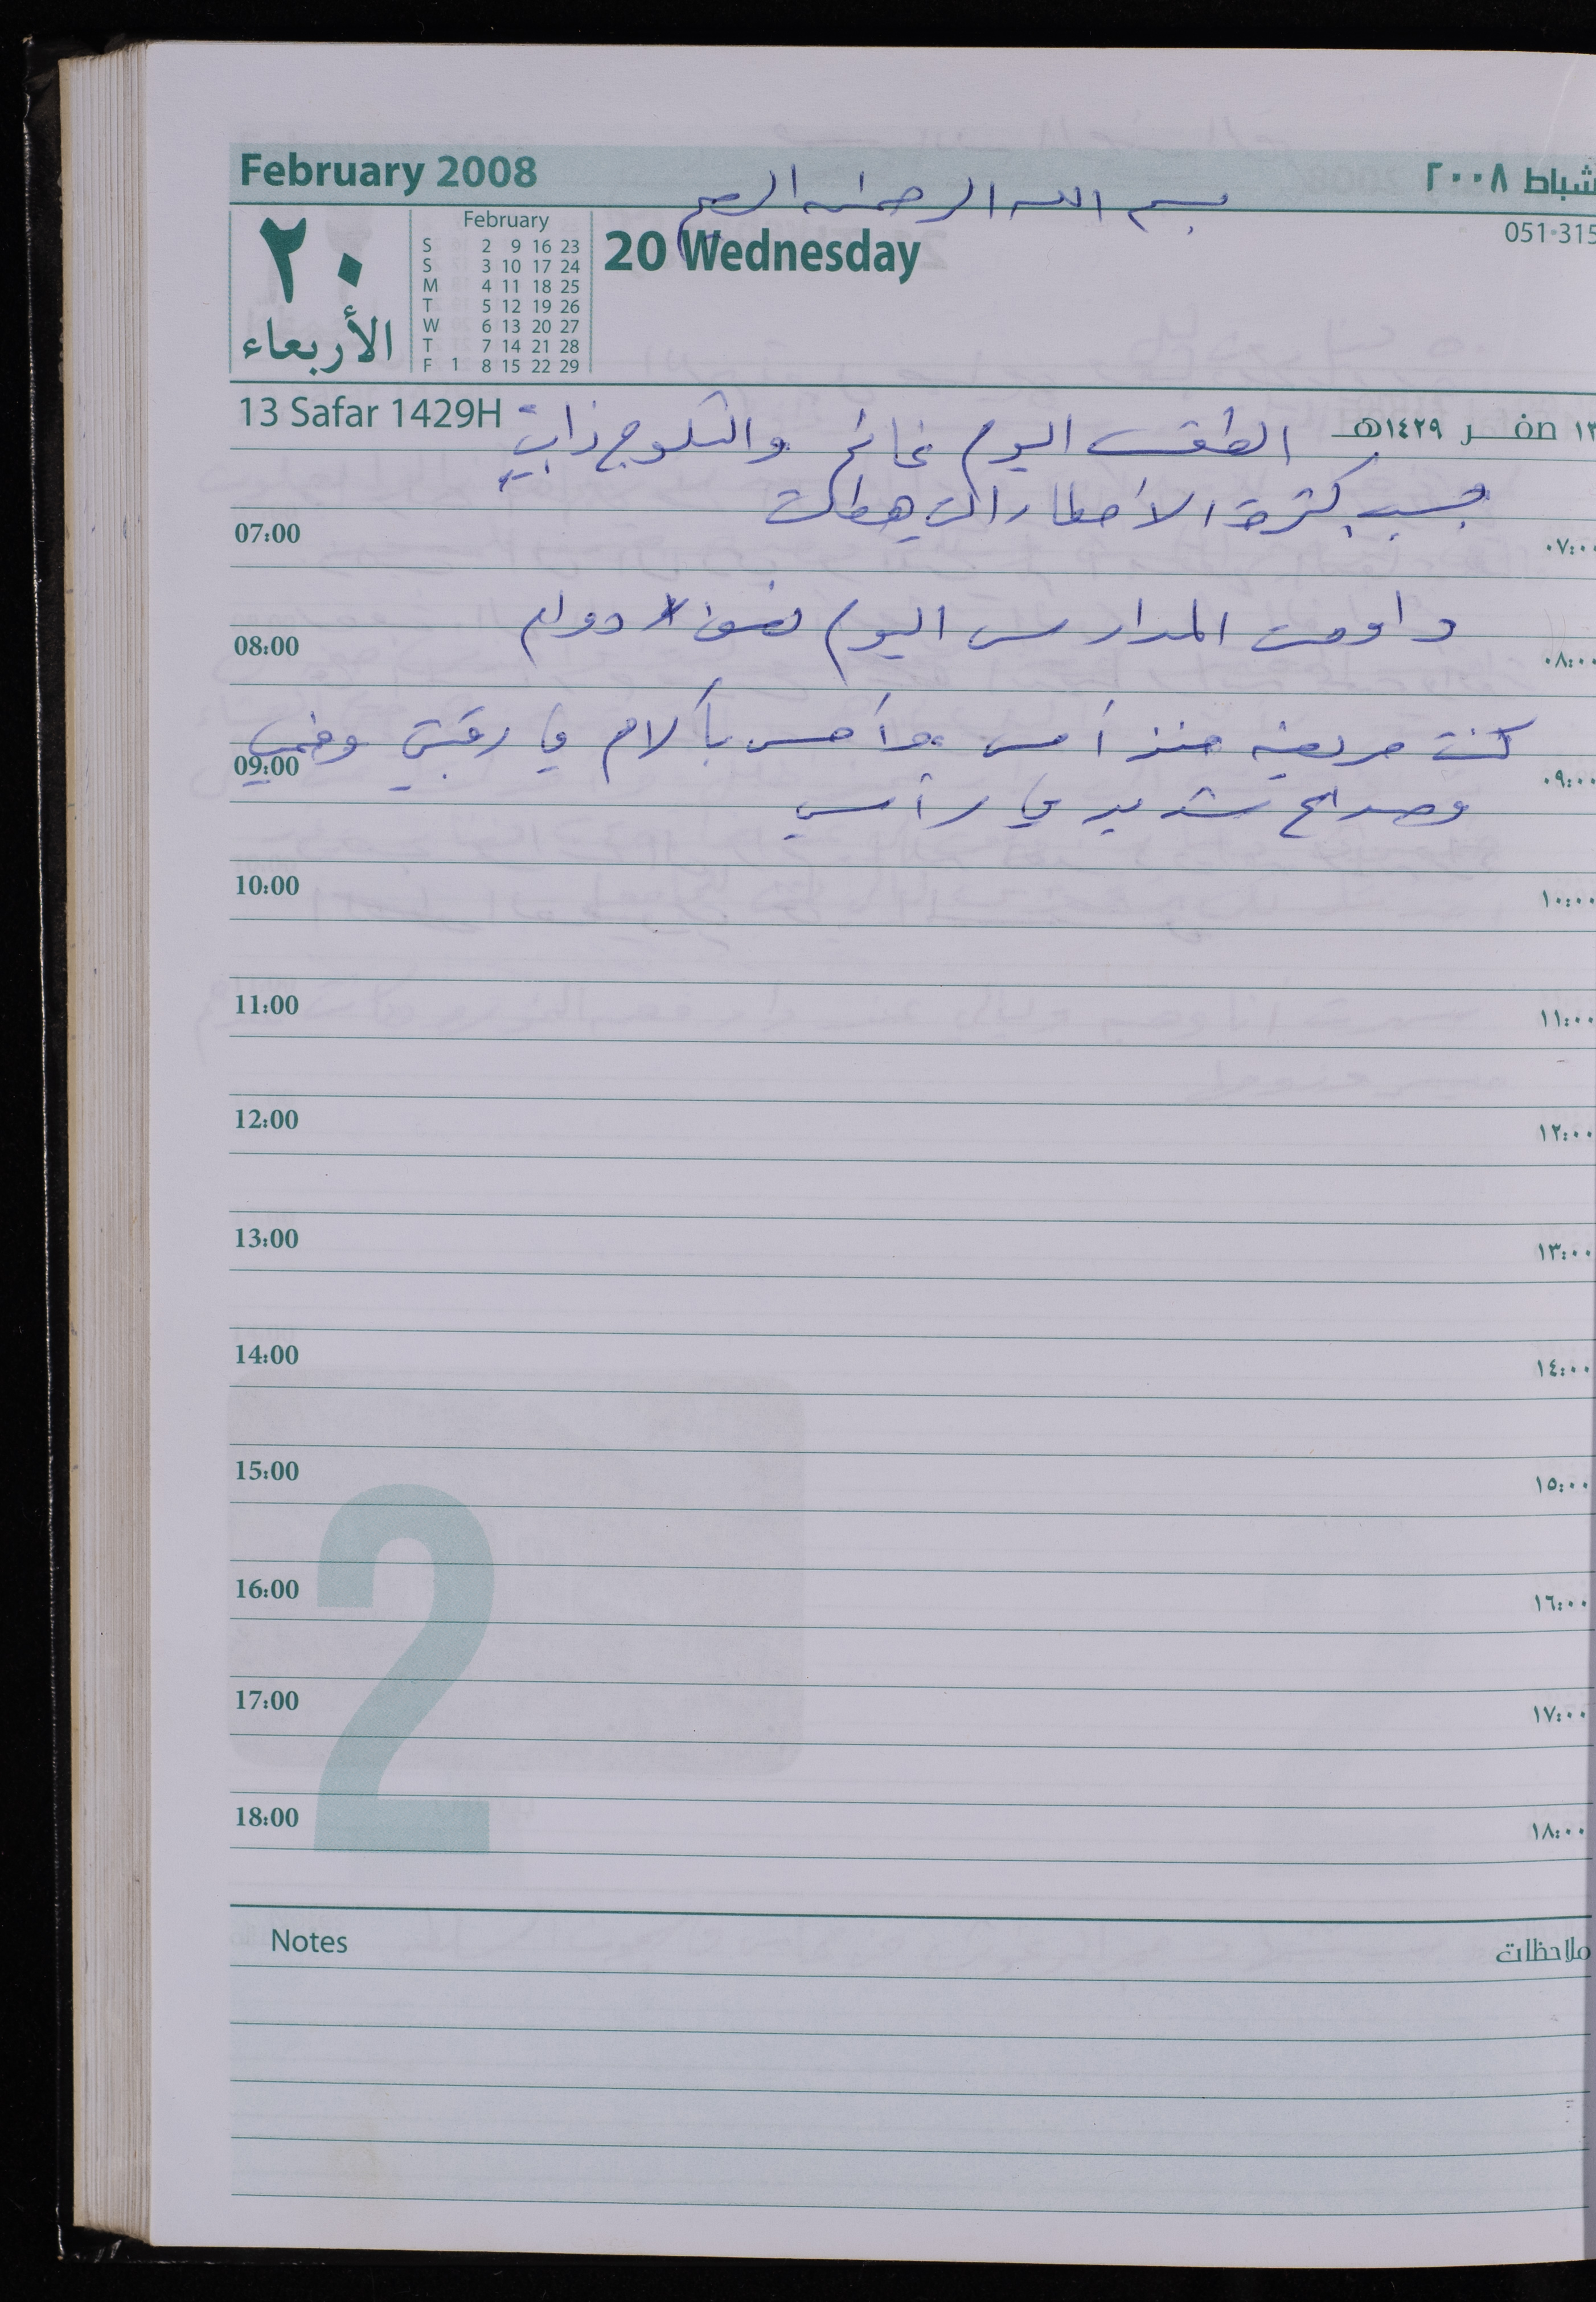 February 2008
شباط ٢٠٠٨
بسم الله الرحمن الرحيم
٢٠
الأربعاء
February
S 2 9 16 23
S 3 10 17 24
M 4 11 18 25
T 5 12 19 26
W 6 13 20 27
T 7 14 21 28
F 1 8 15 22 29
20 Wednesday
051-315
13 Safar 1429H
١٣ صفر ١٤٢٩هـ
الطقس اليوم غائم والثلوج ذابت
بسبب كثرة الأمطار التي هطلت
07:00 ٠٧:٠٠
داومت المدارس اليوم نصف دوام
08:00 ٠٨:٠٠
كنت مريضة منذ أمس وأحس بآلام في رقبتي وفمي
09:00 ٠٩:٠٠
وصداع شديد في رأسي
10:00 ١٠:٠٠
11:00 ١١:٠٠
12:00 ١٢:٠٠
13:00 ١٣:٠٠
14:00 ١٤:٠٠
15:00 ١٥:٠٠
16:00 ١٦:٠٠
17:00 ١٧:٠٠
18:00 ١٨:٠٠
2
Notes ملاحظات